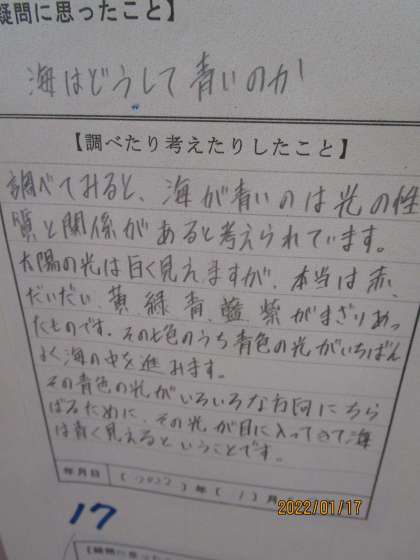 疑問に思ったこと】
海はどうして青いのか
【調べたり考えたりしたこと】
調べてみると、海が青いのは光の性
質と関係があると考えられています。
太陽の光は白く見えますが、本当は赤、
だいだい、黄、緑、青、藍、紫がまざりあっ
たものです。その七色のうち青色の光がいちばん
よく海の中を進みます。
その青色の光がいろいろな方向にちら
ばるために、その光が目に入ってきて海
は青く見えるということです。
年月日 ( 2022 )年( 1 )月
2022/01/17
17